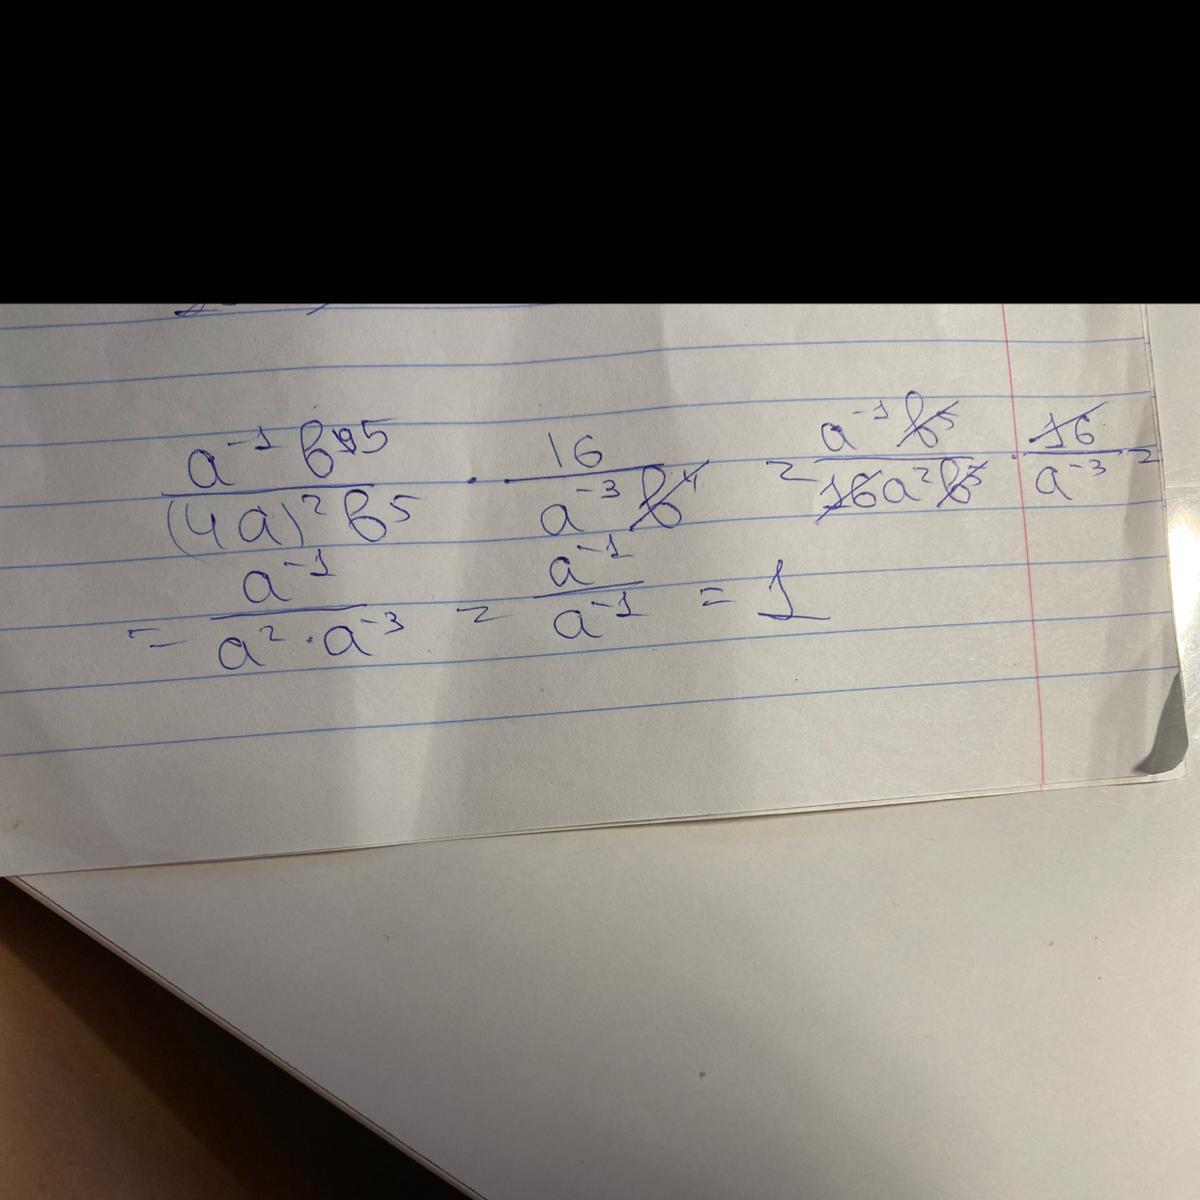 a⁻¹ b⁹⁵ / (4a)² b⁵ · 16 / a⁻³ b⁴ = a⁻¹ b⁵ / 16a² b⁵ · 16 / a⁻³ =
= a⁻¹ / a² · a⁻³ = a⁻¹ / a⁻¹ = 1